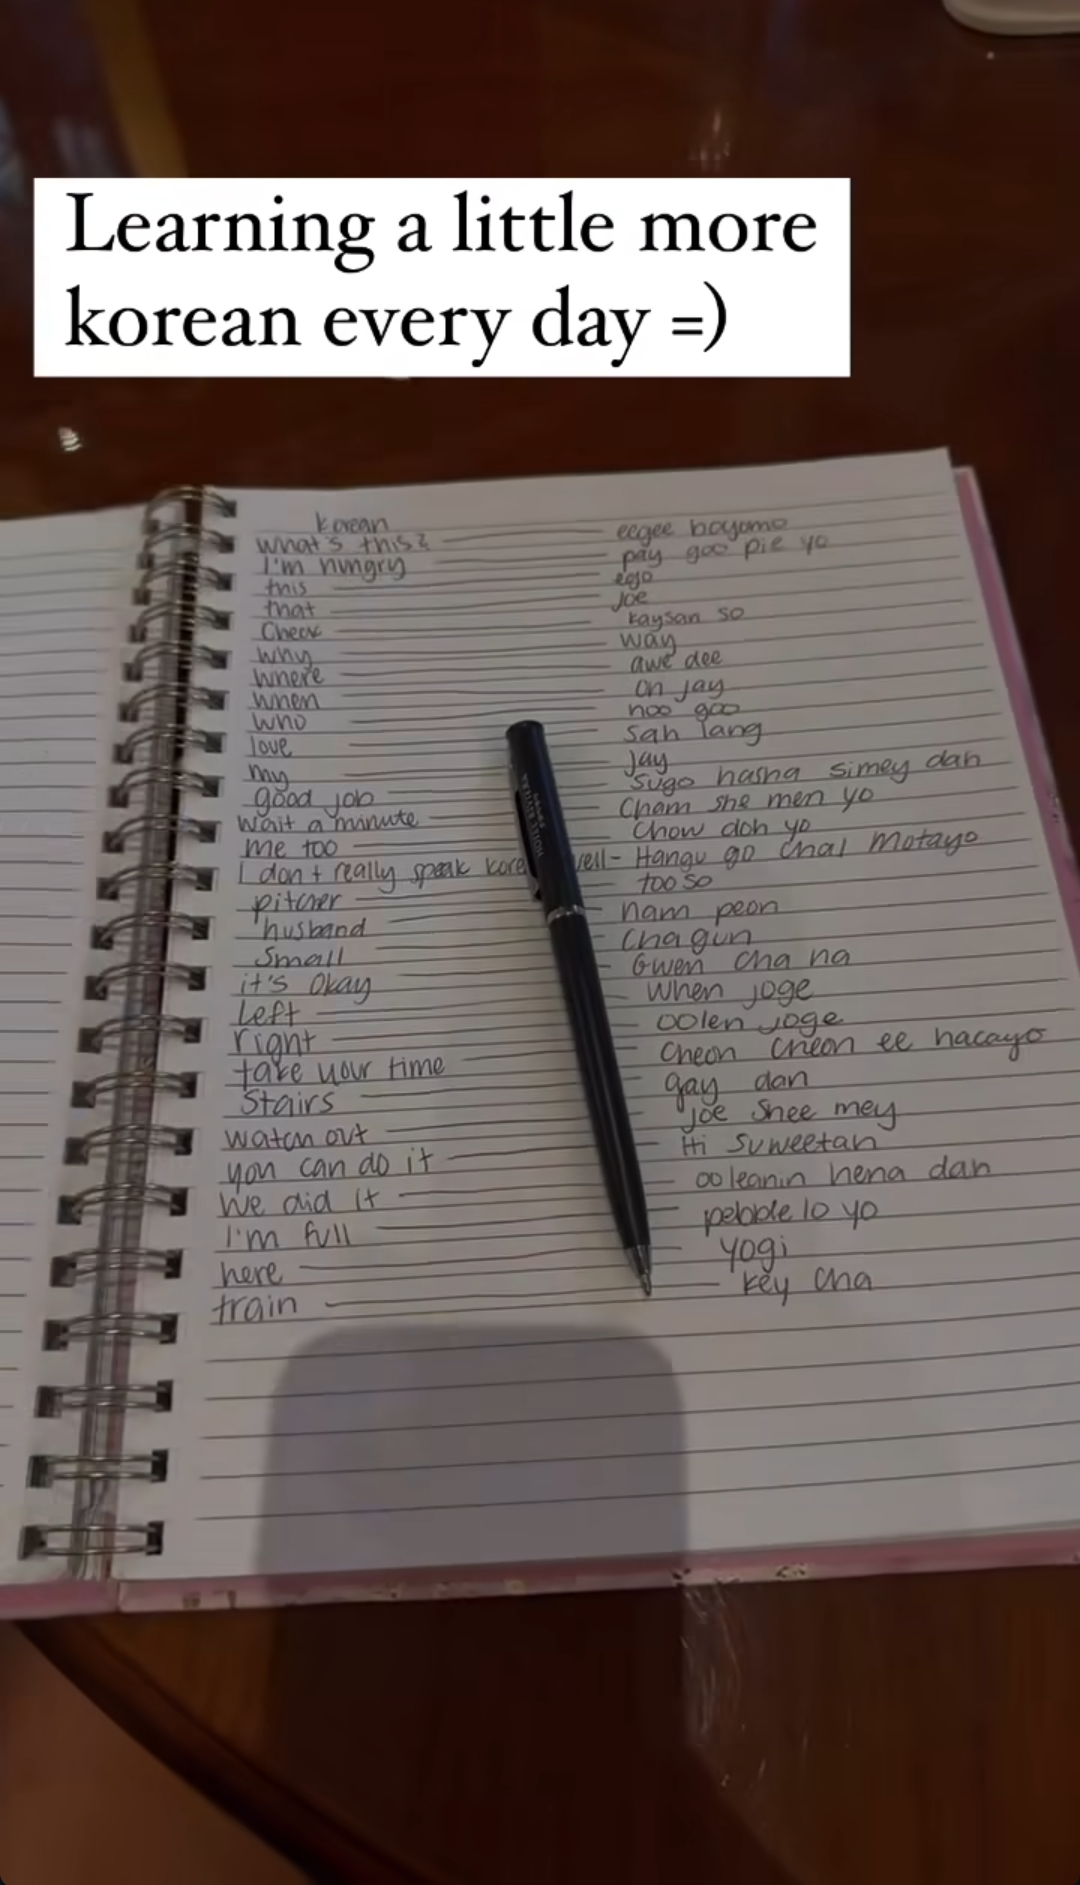 Learning a little more
korean every day =)
korean
what's this? eegee boyomo
I'm hungry pay goo pie yo
this ego
that Joe
Check kaysan so
why way
where awe dee
when on jay
who noo goo
love sah lang
my jay
good job sugo hasha simey dah
wait a minute cham she men yo
me too chow doh yo
I don't really speak kore well- Hangu go chal motayo
pitcher too so
husband nam peon
small cha gun
it's okay Gwen cha na
Left when joge
right oolen joge
take your time cheon cheon ee hacayo
stairs gay dan
watch out joe shee mey
you can do it Hi suweetah
we did it ooleanin hena dah
I'm full pebble lo yo
here yogi
train key cha